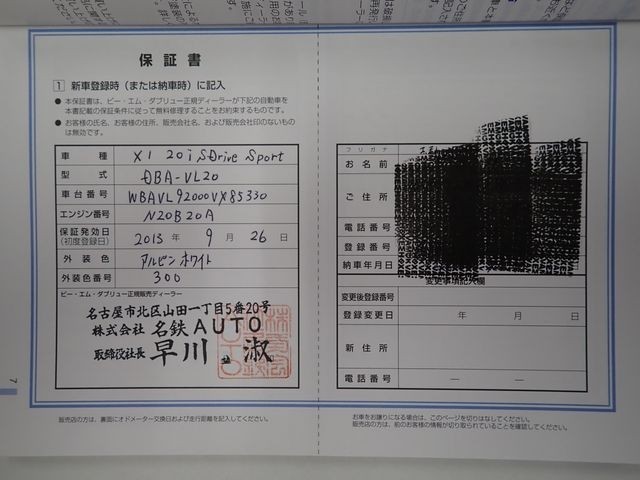 保証書
1 新車登録時（または納車時）に記入
● 本保証書は、ビー・エム・ダブリュー正規ディーラーが下記の自動車を
本書記載の保証条件に従って無料修理することをお約束するものです。
● お客様の氏名、お客様の住所、販売会社名、および販売会社印のないもの
は無効です。
車種 X1 20i SDrive Sport
型式 DBA-VL20
車台番号 WBAVL92000VX85330
エンジン番号 N20B20A
保証発効日
(初度登録日) 2013 年 9 月 26 日
外装色 アルピンホワイト
外装色番号 300
ビー・エム・ダブリュー正規販売ディーラー
名古屋市北区山田一丁目5番20号
株式会社 名鉄AUTO
取締役社長 早川 淑
販売店の方は、裏面にオドメーター交換日および走行距離を記入してください。
7
フリガナ
お名前
ご住所
電話番号
登録番号
納車年月日
変更事項記入欄
変更後登録番号
登録変更日 年 月 日
新住所
電話番号 — —
お車をお譲りになる場合は、このページを切りはなしてください。
販売店の方は、前のお客様の情報が切り取られていることを確認してください。